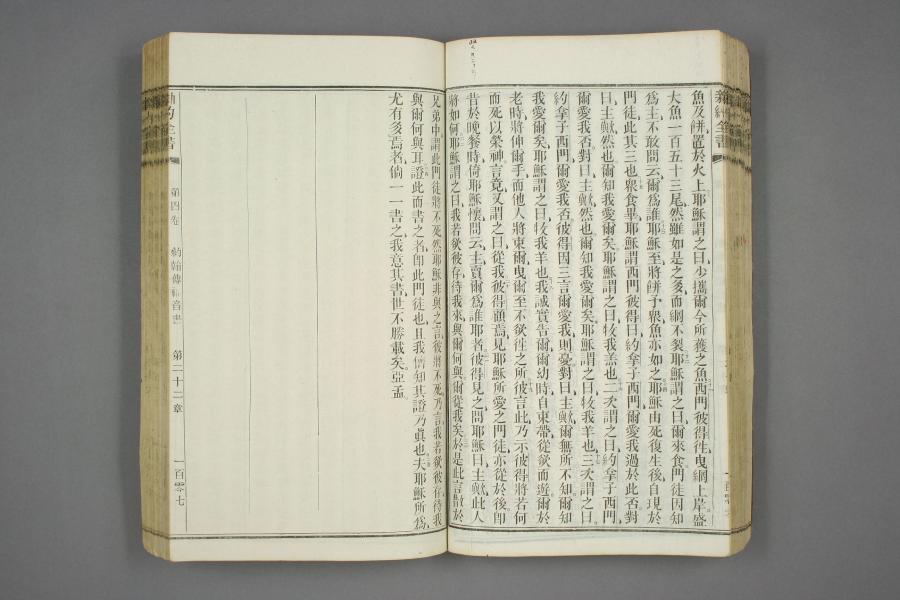 新約全書
魚及餅置於火上耶穌謂之曰少攜爾今所獲之魚西門彼得往曳網上岸盛
大魚一百五十三尾然雖如是之多而網不裂耶穌謂之曰爾來食門徒因知
爲主不敢問云爾爲誰耶穌至將餅予衆魚亦如之耶穌由死復生後自現於
門徒此其三也衆食畢耶穌謂西門彼得曰約拿子西門爾愛我過於此否對
曰主歟然也爾知我愛爾矣耶穌謂之曰牧我羔也二次謂之曰約拿子西門
爾愛我否對曰主歟然也爾知我愛爾矣耶穌謂之曰牧我羊也三次謂之曰
約拿子西門爾愛我否彼得因三言爾愛我則憂對曰主歟爾無所不知爾知
我愛爾矣耶穌謂之曰牧我羊也我誠實告爾爾幼時自束帶從欲而遊爾於
老時將伸爾手而他人將束爾曳爾至不欲往之所彼言此乃示彼得將若何
而死以榮神言竟又謂之曰從我彼得顧焉見耶穌所愛之門徒亦從於後卽
昔於晚餐時倚耶穌懷問云主賣爾爲誰耶者彼得見之問耶穌曰主歟此人
將如何耶穌謂之曰我若欲彼存待我來與爾何與爾從我矣於是此言散於
兄弟中謂此門徒將不死然耶穌非與之言彼將不死乃言我若欲彼存待我
與爾何與耳證此而書之者卽此門徒也且我儕知其證乃眞也夫耶穌所爲
尤有多焉者倘一一書之我意其書世不勝載矣亞孟
新約全書
第四卷
約翰傳福音書
第二十一章
一百零七